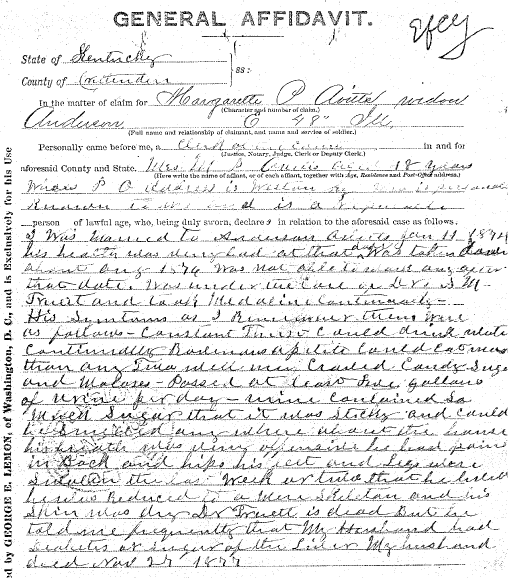 GENERAL AFFIDAVIT.
State of Kentucky
County of Crittenden
ss:
In the matter of claim for Margarette P widow
(Character and number of claim.)
Anderson E 48" Ill,
(Full name and relationship of claimant, and name and service of soldier.)
Personally came before me, a in and for
(Justice, Notary, Judge, Clerk or Deputy Clerk.)
aforesaid County and State. Mrs M P
(Here write name of affiant, or of each affiant, together with Age, Residence and Post-office address.)
Whose P O address is
Known to me and is a
person of lawful age, who, being duly sworn, declares in relation to the aforesaid case as follows.
I Was Married to Anderson Jan 11 1874
his health was very bad at that Was taken down
about Aug 1876 Was not able to any after
that date. Was under the care of Dr S M
Truett and took Medicine Continualy -
His Symtoms as I Remember them were
as follows - Constant Thirst Could drink water
Continually apetite Could eat more
than any well men Craved Candy Suga
and Molases - Passed at least five gallons
of Urine per day - urine contained So
Much Sugar that it was Sticky and could
be any where about the house
his breath was very offensive he had pains
in Back and hips his feet and Legs were
Swollen the last Week or two that he lived
he was Reduced to a Mere Skeletan and his
Skin was dry Dr Truett is dead But he
told me frequently that My Husband had
Diabetes or Sugar of the Liver My husband
died Nov 27 1877
ed by GEORGE E. LEMON, of Washington, D. C., and is Exclusively for his Use